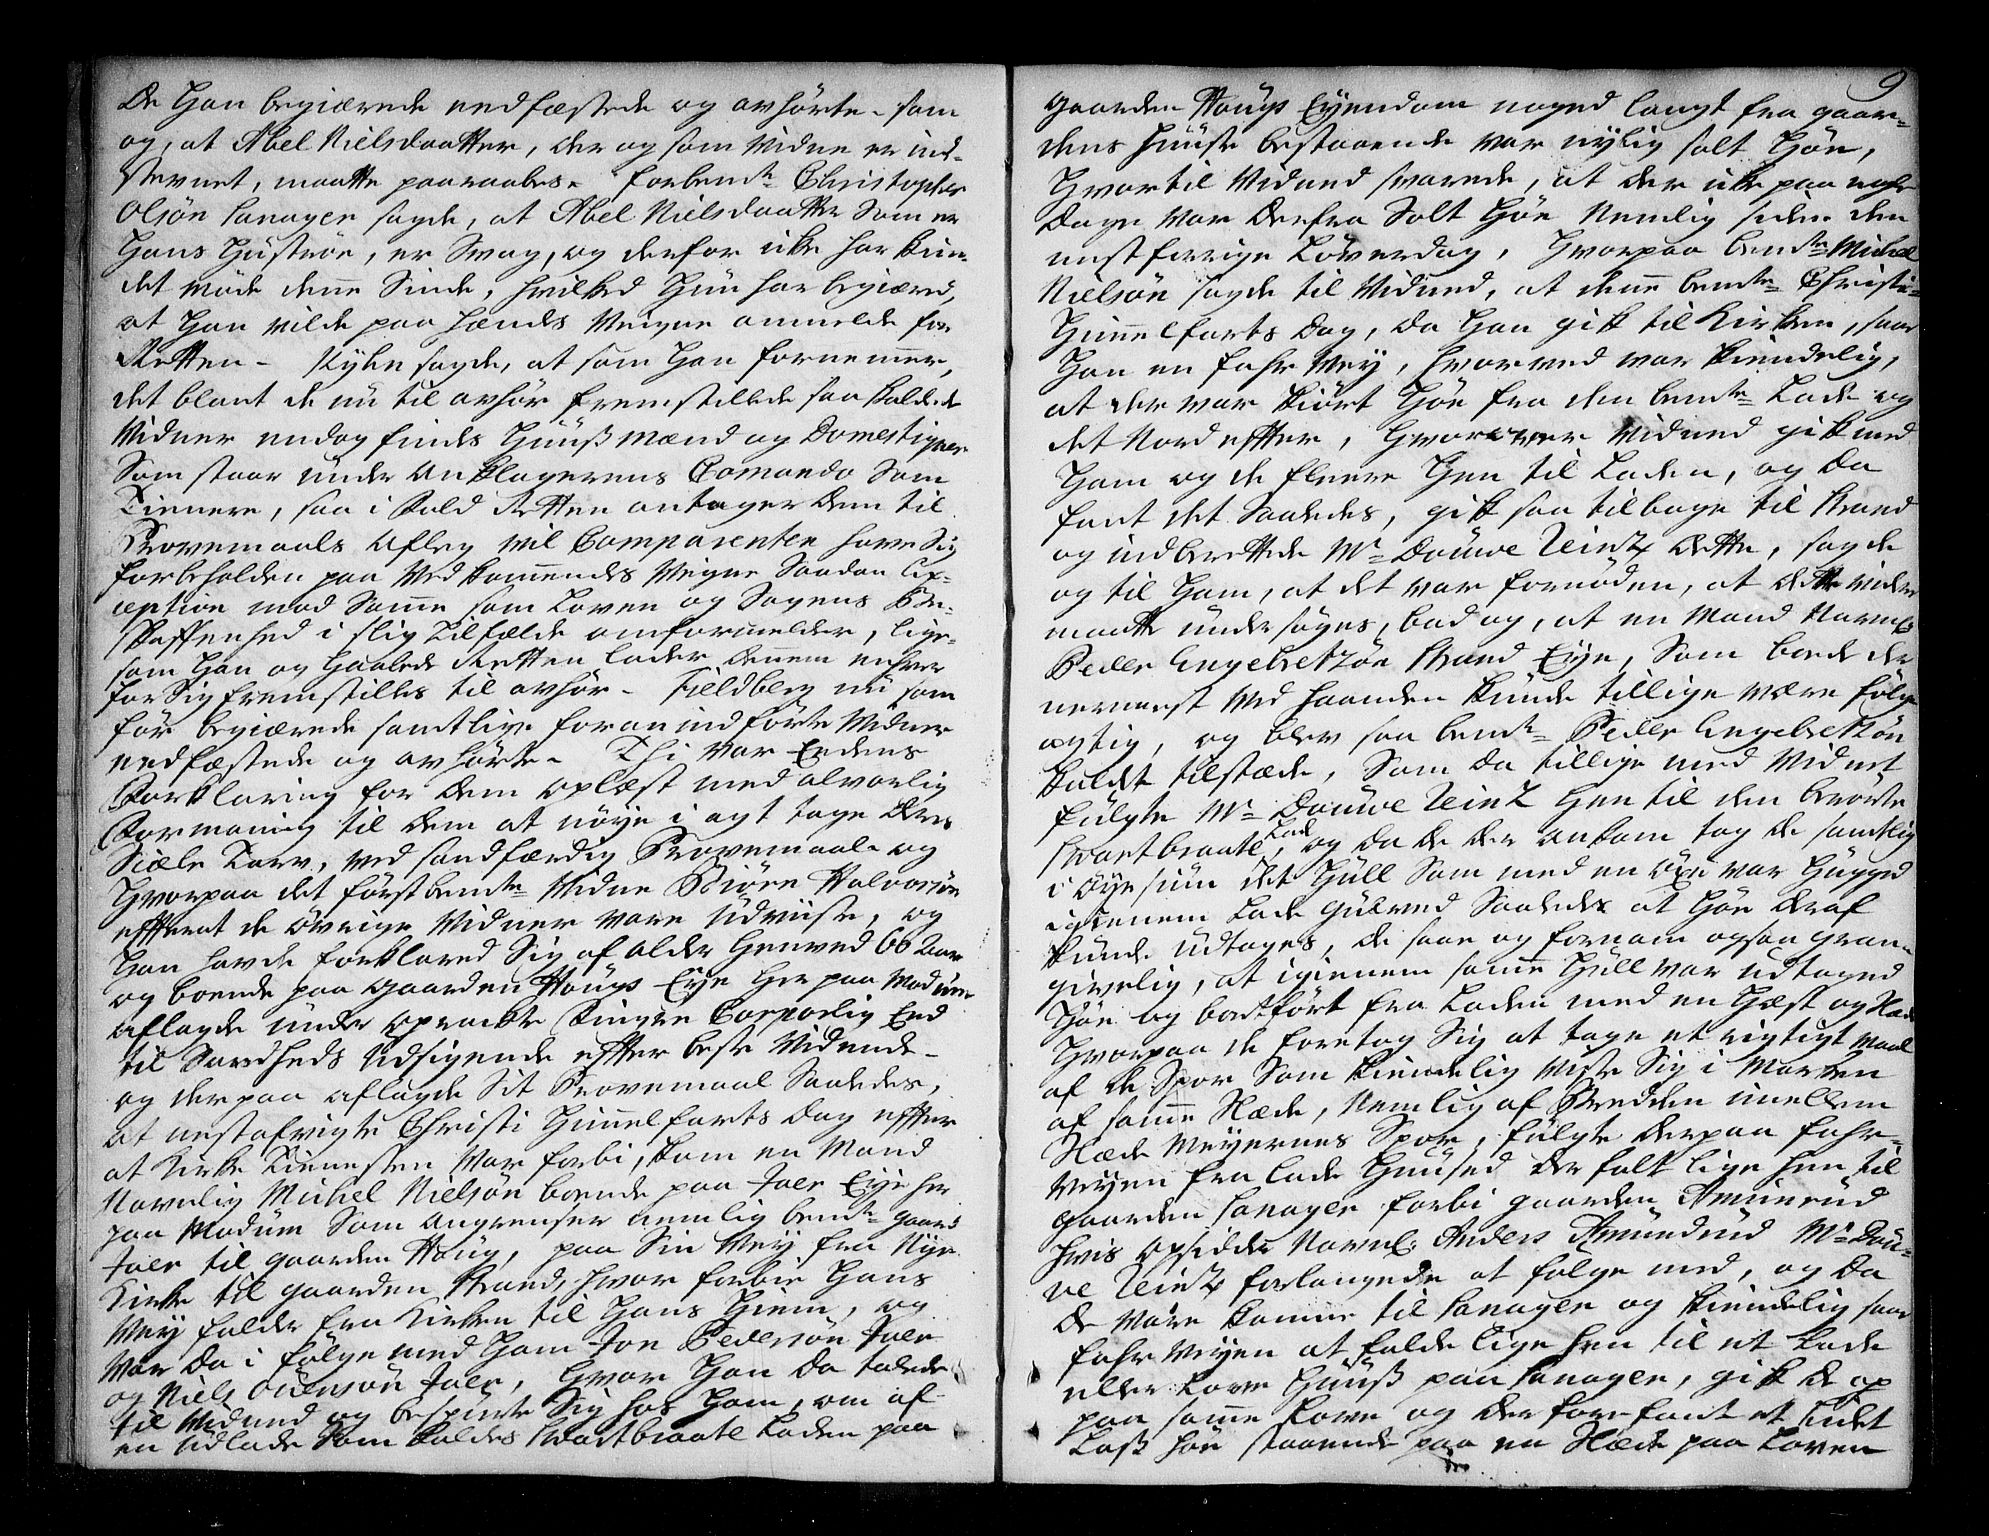 De Han begiærede eedfæstede og avhørte. som
og, at Abel Nielsdaatter, der og som Vidne er ind-
stevnet, maatte paaraabes. forbemte Christopher
Olsøn Sanager sagde, at Abel Nielsdaatter Som er
Hans Hustrøe, er Svag, og derfor icke har kun-
det møde denne Sinde, hvilked Hun har begiæred,
at Han vilde paa Hendes Veigne anmelde for
Retten. Kyhn sagde, at som Han fornemmer,
det blant de nu til avhør fremstillede saa kaldede
Vidner endog findes Huusmænd og Domestiquer
Som staar under Anklagerens Comando Som
Tienere, saa i Fald Retten antager dem til
Provemaals Aflæg vil Comparenten have Sig
forbeholden paa Vedkommendes Veigne Saadan Ex-
ception mod Samme som Loven og Sagens Be-
skaffenhed i slig Tilfælde omformelder, lige-
som Han og haabede Retten lader dennem enhver
for Sig fremstilles til avhør. Fieldberg nu som
før begiærede samtlige foranindførte Vidner
eedfæstede og avhørte. Thi var Eedens
Forklaring for dem oplæst med alvorlig
Formaning til dem at nøye i agt tage deres
Siæle Tarv, ved sandfærdig Provemaal. og
Hvorpaa det førstbemte Vidne Biørn Halvorsøn
efterat de øvrige Vidner vare Udviiste, og
Han havde forklared Sig af alder henved 66 Aar
og boende paa gaarden Hougs Eye her paa Modum
aflagde under oprackte Fingre Corporlig Eed
til Sandheds Udsigende effter beste Vidende.
og derpaa aflagde Sit Provemaal Saaledes,
at nestafvigte Christi Himmelfarts Dag effter
at Kirke Tienesten var forbi, kom en Mand
Navnlig Michel Nielsøn boende paa Joer Eye her
paa Modum Som angrenser nemlig bemte gaard
Joer til gaarden Houg, paa Sin Vey fra Nye
Kirke til gaarden Strand, hvor forbie Hans
Vey falder fra Kirken til Hans Hiem, og
var da i følge med Ham Jon Pedersøn Joer
og Niels Joer, hvor Han da talede
til Vidned og bespurte Sig hos Ham, om af
en Udlade Som kaldes Svartbraate Laden paa
9
gaarden Hougs Eyendom noged langt fra gaar-
dens Huuse bestaaende var nylig solt Høe,
Hvortil Vidned svarede, at der icke paa nogle
Dage var derfra Solt Høe Nemlig siden den
nestforrige Løverdag, Hvorpaa bemte Michel
Nielsøn sagde til Vidned, at denne bemte Christi
Himmelfarts Dag, da Han gik til Kirken, saae
Han en fahr Vey, hvorved var kiendelig,
at der var kiørt Høe fra den bemte Lade og
det Nord effter, Hvorover Vidned gik med
Ham og de fleere Hen til Laden, og da
fant det Saaledes, gik saa tilbage til Strand
og indberettede Mr Douwe Teintz dette, sagde
og til Ham, at det var fornøden, at dette videre
maatte undersøges, bad og, at en Mand Navnl.
Peder Engebretsøn Strand Eye, Som boede der
nermest ved haanden kunde tillige være følge
agtig, og blev saa bemte Peder Engebretsøn
kaldet tilstæde, Som da tillige med Vidnet
fulgte Mr Douwe Teintz Hen til den berørte
Svartbraate Lade, og da de der ankom tog de samtlig
i Øyesiun det Hull Som med en Øxe var Hugged
igienem Lade gulved Saaledes at Høe deraf
kunde udtages, de saae og fornam ogsaa gran-
givelig, at igienem samme Hull var udtaged
Høe og bortført fra Laden med en Hest og Slæde
Hvorpaa de foretog Sig at tage et rigtigt Maal
af de Spor Som kiendelig viste Sig i Marken
af samme Slæde, Nemlig af Bredden imellem
Slæde Meyernes Spor, fulgte derpaa fahr-
veyen fra Lade Huused der falt lige hen til
gaarden Sanager forbi gaarden Amunrud
hvis opsidder Navnl. Anders Amundrud Mr Dou-
we Teintz forlangede at følge med, og da
de vare komne til Sanager og kiendelig saae
fahr Veyen at falde lige hen til et Lade
eller Lowe Huus paa Sanager, gik de op
paa samme Lowe og der forefant et lidet
Lass høe staaende paa en Slæde paa Lowen